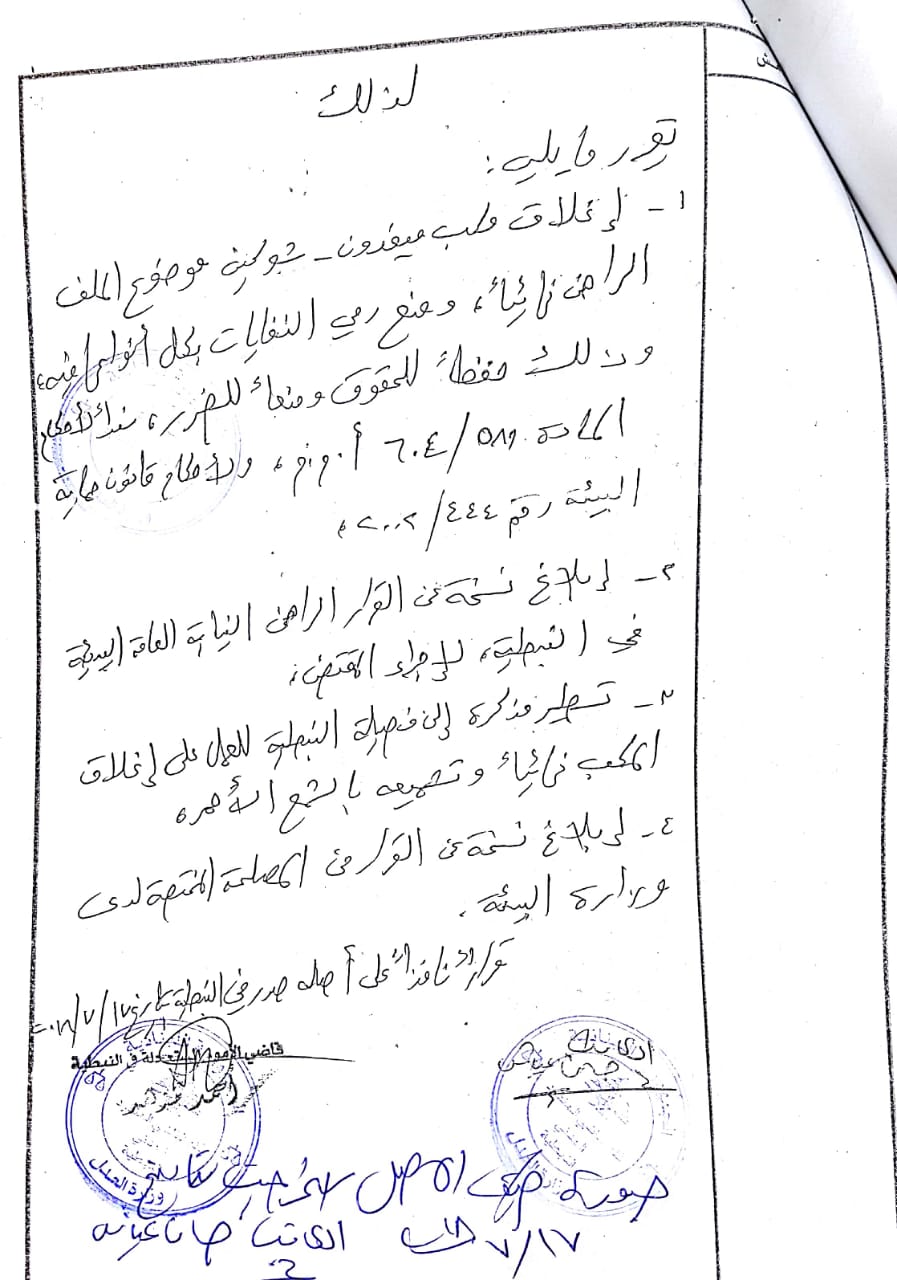 لذلك
تقرر ما يلي:
١- إغلاق مكب ميفدون - شوكين موضوع الملف
الراهن نهائياً، ومنع رمي النفايات بكل أنواعها فيه،
وذلك حفظاً للحقوق ومنعاً للضرر، سنداً لأحكام
المادة ٥٨٩/٦٠٤ أ.م.م، ولأحكام قانون حماية
البيئة رقم ٤٤٤/٢٠٠٢،
٢- إبلاغ نسخة عن القرار الراهن النيابة العامة البيئية
في النبطية، لإجراء المقتضى،
٣- تسطير مذكرة إلى فصيلة النبطية للعمل على إغلاق
المكب نهائياً وتشميعه بالشمع الأحمر،
٤- إبلاغ نسخة عن القرار من المصلحة المختصة لدى
وزارة البيئة.
قراراً نافذاً على أصله صدر في النبطية بتاريخ ١٧/٧/
الكاتب
قاضي الأمور المستعجلة في النبطية
أحمد
وزارة العدل
صورة طبق الاصل
١٧/٧ الكاتب